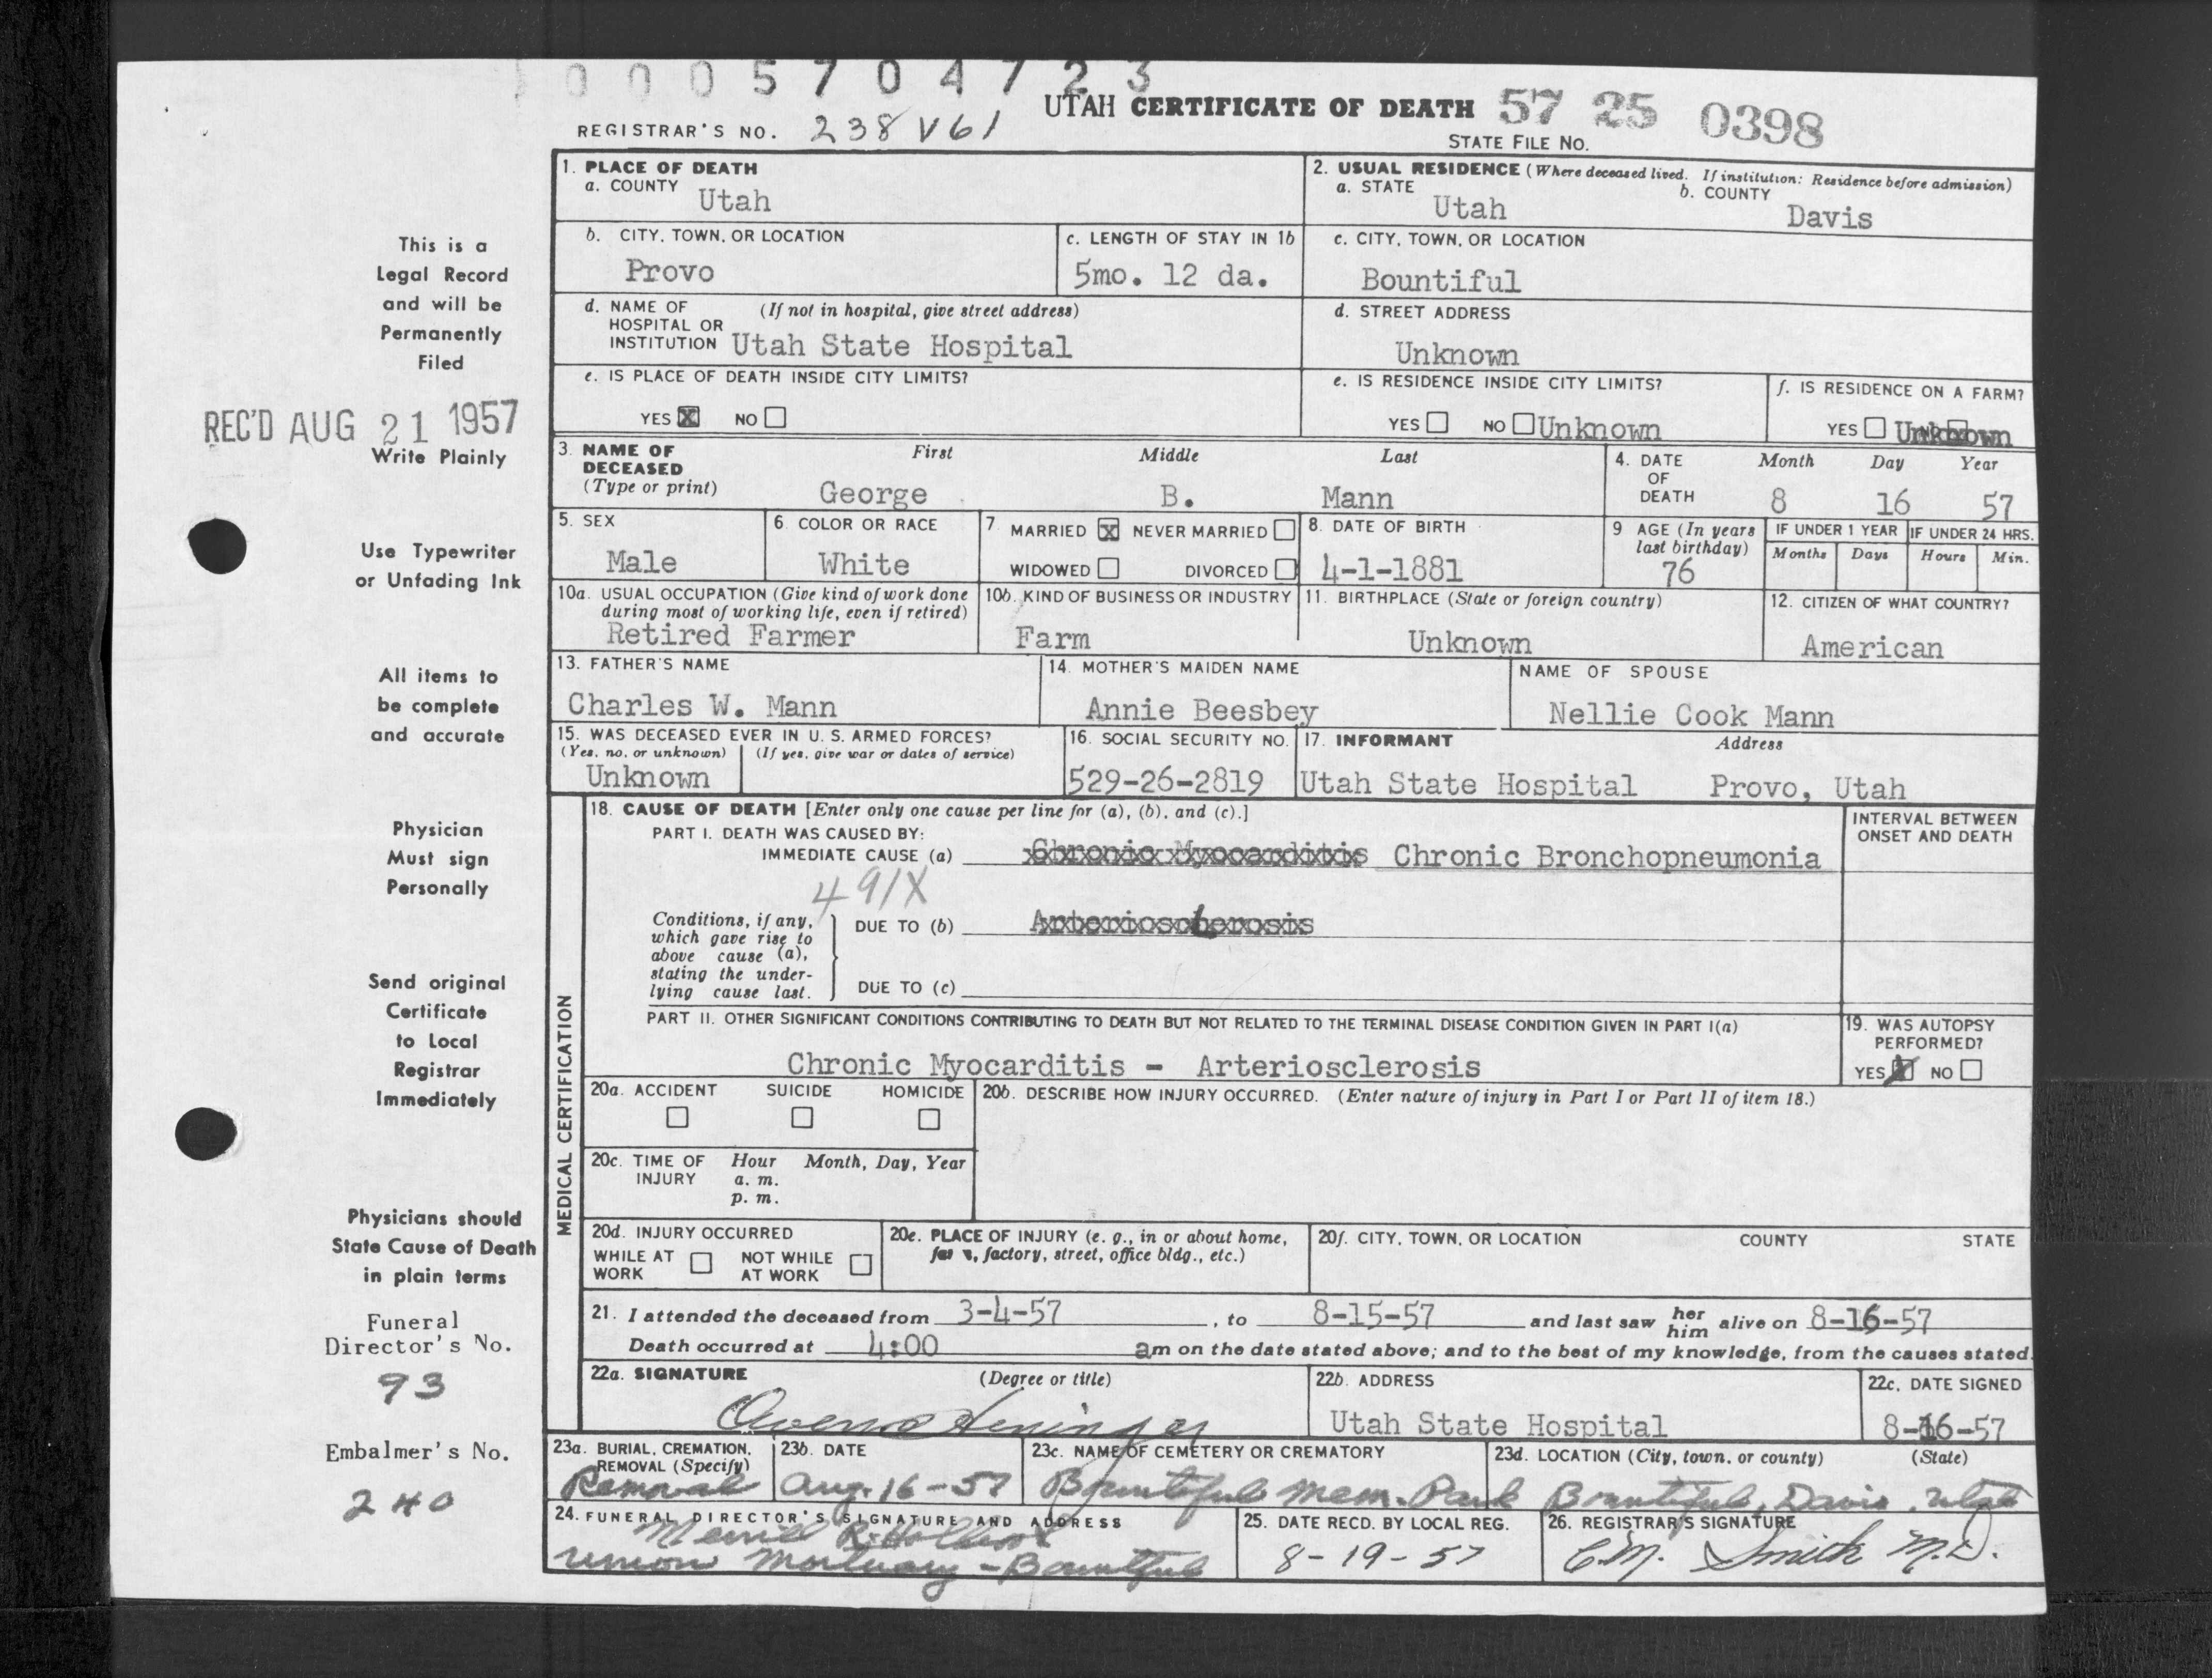 0 0 0 5 7 0 4 7 2 3
UTAH CERTIFICATE OF DEATH 57 25 0398
REGISTRAR'S NO. 238 V61
STATE FILE NO.
1. PLACE OF DEATH
a. COUNTY Utah
2. USUAL RESIDENCE (Where deceased lived. If institution: Residence before admission)
a. STATE Utah
b. COUNTY Davis
b. CITY, TOWN, OR LOCATION
Provo
c. LENGTH OF STAY IN 1b
5mo. 12 da.
c. CITY, TOWN, OR LOCATION
Bountiful
d. NAME OF (If not in hospital, give street address)
HOSPITAL OR
INSTITUTION Utah State Hospital
d. STREET ADDRESS
Unknown
e. IS PLACE OF DEATH INSIDE CITY LIMITS?
YES X NO
e. IS RESIDENCE INSIDE CITY LIMITS?
YES NO Unknown
f. IS RESIDENCE ON A FARM?
YES Unknown
3. NAME OF DECEASED
(Type or print)
First Middle Last
George B. Mann
4. DATE OF DEATH
Month Day Year
8 16 57
5. SEX
Male
6. COLOR OR RACE
White
7. MARRIED X NEVER MARRIED
WIDOWED DIVORCED
8. DATE OF BIRTH
4-1-1881
9 AGE (In years last birthday)
76
IF UNDER 1 YEAR IF UNDER 24 HRS.
Months Days Hours Min.
10a. USUAL OCCUPATION (Give kind of work done
during most of working life, even if retired)
Retired Farmer
10b. KIND OF BUSINESS OR INDUSTRY
Farm
11. BIRTHPLACE (State or foreign country)
Unknown
12. CITIZEN OF WHAT COUNTRY?
American
13. FATHER'S NAME
Charles W. Mann
14. MOTHER'S MAIDEN NAME
Annie Beesbey
NAME OF SPOUSE
Nellie Cook Mann
15. WAS DECEASED EVER IN U. S. ARMED FORCES?
(Yes, no, or unknown) (If yes, give war or dates of service)
Unknown
16. SOCIAL SECURITY NO.
529-26-2819
17. INFORMANT Address
Utah State Hospital Provo, Utah
MEDICAL CERTIFICATION
18. CAUSE OF DEATH [Enter only one cause per line for (a), (b), and (c).]
INTERVAL BETWEEN
ONSET AND DEATH
PART I. DEATH WAS CAUSED BY:
IMMEDIATE CAUSE (a) Chronic Myocarditis Chronic Bronchopneumonia
491X
Conditions, if any,
which gave rise to
above cause (a),
stating the under-
lying cause last.
DUE TO (b) Arteriosclerosis
DUE TO (c)
PART II. OTHER SIGNIFICANT CONDITIONS CONTRIBUTING TO DEATH BUT NOT RELATED TO THE TERMINAL DISEASE CONDITION GIVEN IN PART I(a)
Chronic Myocarditis - Arteriosclerosis
19. WAS AUTOPSY
PERFORMED?
YES X NO
20a. ACCIDENT SUICIDE HOMICIDE
20b. DESCRIBE HOW INJURY OCCURRED. (Enter nature of injury in Part I or Part II of item 18.)
20c. TIME OF INJURY Hour Month, Day, Year
a. m.
p. m.
20d. INJURY OCCURRED
WHILE AT WORK NOT WHILE AT WORK
20e. PLACE OF INJURY (e. g., in or about home,
factory, street, office bldg., etc.)
20f. CITY, TOWN, OR LOCATION COUNTY STATE
21. I attended the deceased from 3-4-57, to 8-15-57 and last saw her him alive on 8-16-57
Death occurred at 4:00 am on the date stated above; and to the best of my knowledge, from the causes stated.
22a. SIGNATURE (Degree or title)
Heninger
22b. ADDRESS
Utah State Hospital
22c. DATE SIGNED
8-16-57
23a. BURIAL, CREMATION,
REMOVAL (Specify)
Removal
23b. DATE
Aug. 16-57
23c. NAME OF CEMETERY OR CREMATORY
Bountiful Mem. Park
23d. LOCATION (City, town, or county) (State)
Bountiful, Davis, Utah
24. FUNERAL DIRECTOR'S SIGNATURE AND ADDRESS
Merrill R. Holbrook
Union Mortuary - Bountiful
25. DATE RECD. BY LOCAL REG.
8-19-57
26. REGISTRAR'S SIGNATURE
C.M. Smith M.D.
This is a
Legal Record
and will be
Permanently
Filed
REC'D AUG 21 1957
Write Plainly
Use Typewriter
or Unfading Ink
All items to
be complete
and accurate
Physician
Must sign
Personally
Send original
Certificate
to Local
Registrar
Immediately
Physicians should
State Cause of Death
in plain terms
Funeral
Director's No.
93
Embalmer's No.
240